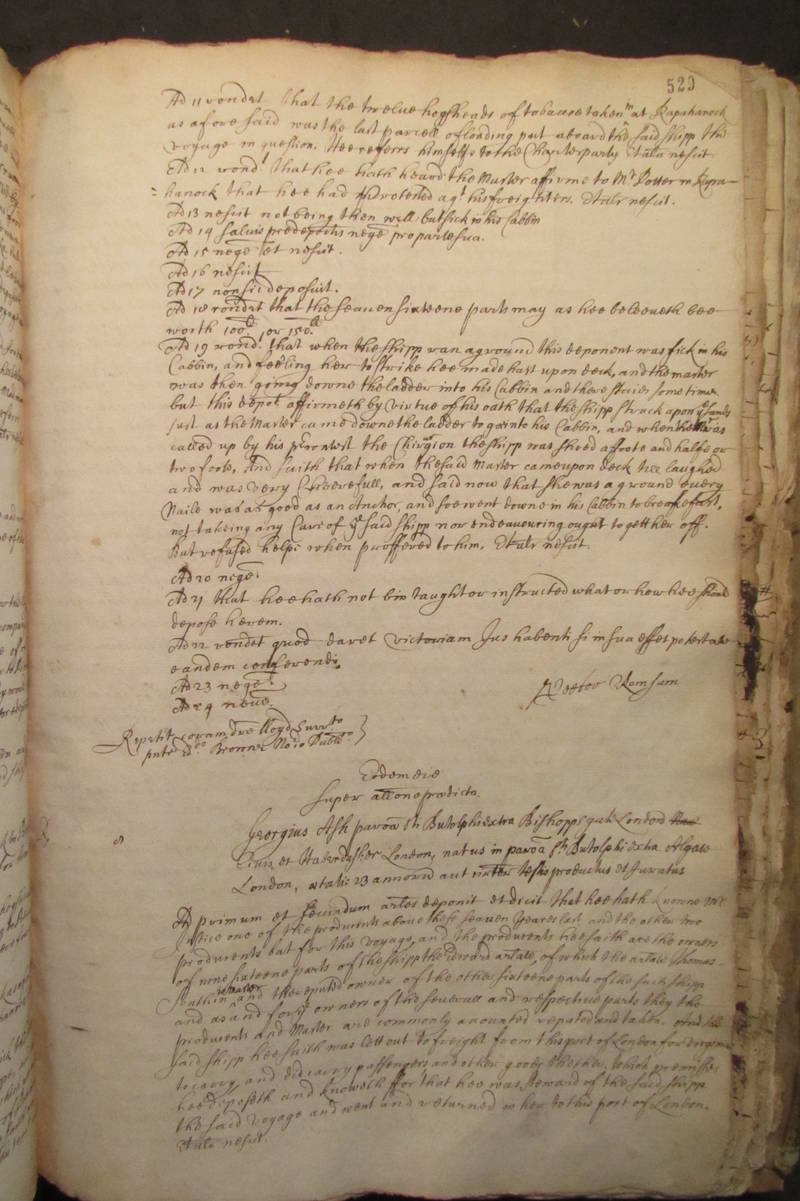 529
Ad 11 rondet That the twelve hogsheads of tobaccoe taken in at Rapahanock
as afore said was the last parcell of loading put aboard the said shipp the
voyage in question. Hee referrs himselfe to the Charterparty Et alr nescit
Ad 12 rond That hee hath heard the Master affirme to Mr Potter in Rapa-
hanock that hee had agt his freighters. Et alr nescit.
Ad 13 nescit not being then well but sick in his Cabbin
Ad 14 salvis predepositis negat pro parte sua.
Ad 15 negat et nescit.
Ad 16 nescit
Ad 17 non sic deposuit.
Ad 18 rondet that the seaven sixteene parts may as hee beleeveth bee
worth 100 li or 150 li
Ad 19 rond. that when the shipp ran aground this deponent was sick in his
Cabbin, and feeling her to strike hee made hast upon deck, and the master
was then going downe the ladder into his Cabbin and there staied some time
but this depot affirmeth by virtue of his oath that the shipp struck upon ye sands
just as the Master came downe the ladder to goe into his Cabbin, and when hee was
called up by his the the shipp was shoed a foote and halfe or
two foote, And saith that when the said Master came upon deck hee laughed
and was very Cheerefull, and said now that shee was a ground every
Naile was as good as an Anchor, and soe went downe in his Cabbin to breakefast,
not takeing any Care of ye said shipp nor endeavouring ought to gett her off.
But refused helpe when proffered to him, Et alr nescit.
Ad 20 negat.
Ad 21 that hee hath not bin taught or instructed what or how hee should
depose herein.
Ad 22 rondet quod daret victoriam Jus habenti si in sua esset potestate
eandem conferendi,
Ad 23 negat
Ad 24 negat
Repetit coram dre Lloyd Surrto
pnte Not. Publco
Eodem die
Super allone predicta.
Georgius Ash paroa sti Butolphi extra Bishopps gate London
Civis et Haberdasher London, natus in paroa sti Butolphi extra Algate
London, ætatis 23 annorum aut testis productus et Juratus
Ad primum et secundum artles deponit et dicit That hee hath knowne Mr
Justice one of the producents above these seaven yeares last and the other two
producents but for this voyage, and the producents hee saith are the owners
of nine sixteene parts of the shipp the Edward artlate, of which the artlate Thomas
master and the reputed owner of the other sixteene parts of the said shipp
and as and for owners of the severall and respective parts they the
producents and Master are commonly accounted reputed and taken. And the
said shipp hee saith was lett out to freight from this port of London for Virginia
to carry and did carry passengers and other goods thether, Which premisses
hee deposeth and knoweth for that hee was steward of the said shipp
the said voyage and went and returned in her to this port of London.
Et alr nescit.